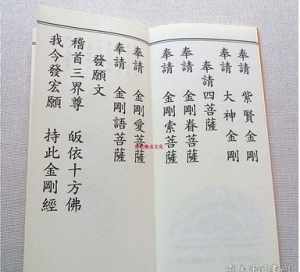 奉請 紫賢金剛
奉請 大神金剛
奉請四菩薩
奉請 金剛眷菩薩
奉請 金剛索菩薩
奉請 金剛愛菩薩
奉請 金剛語菩薩
發願文
稽首三界尊 皈依十方佛
我今發宏願 持此金剛經